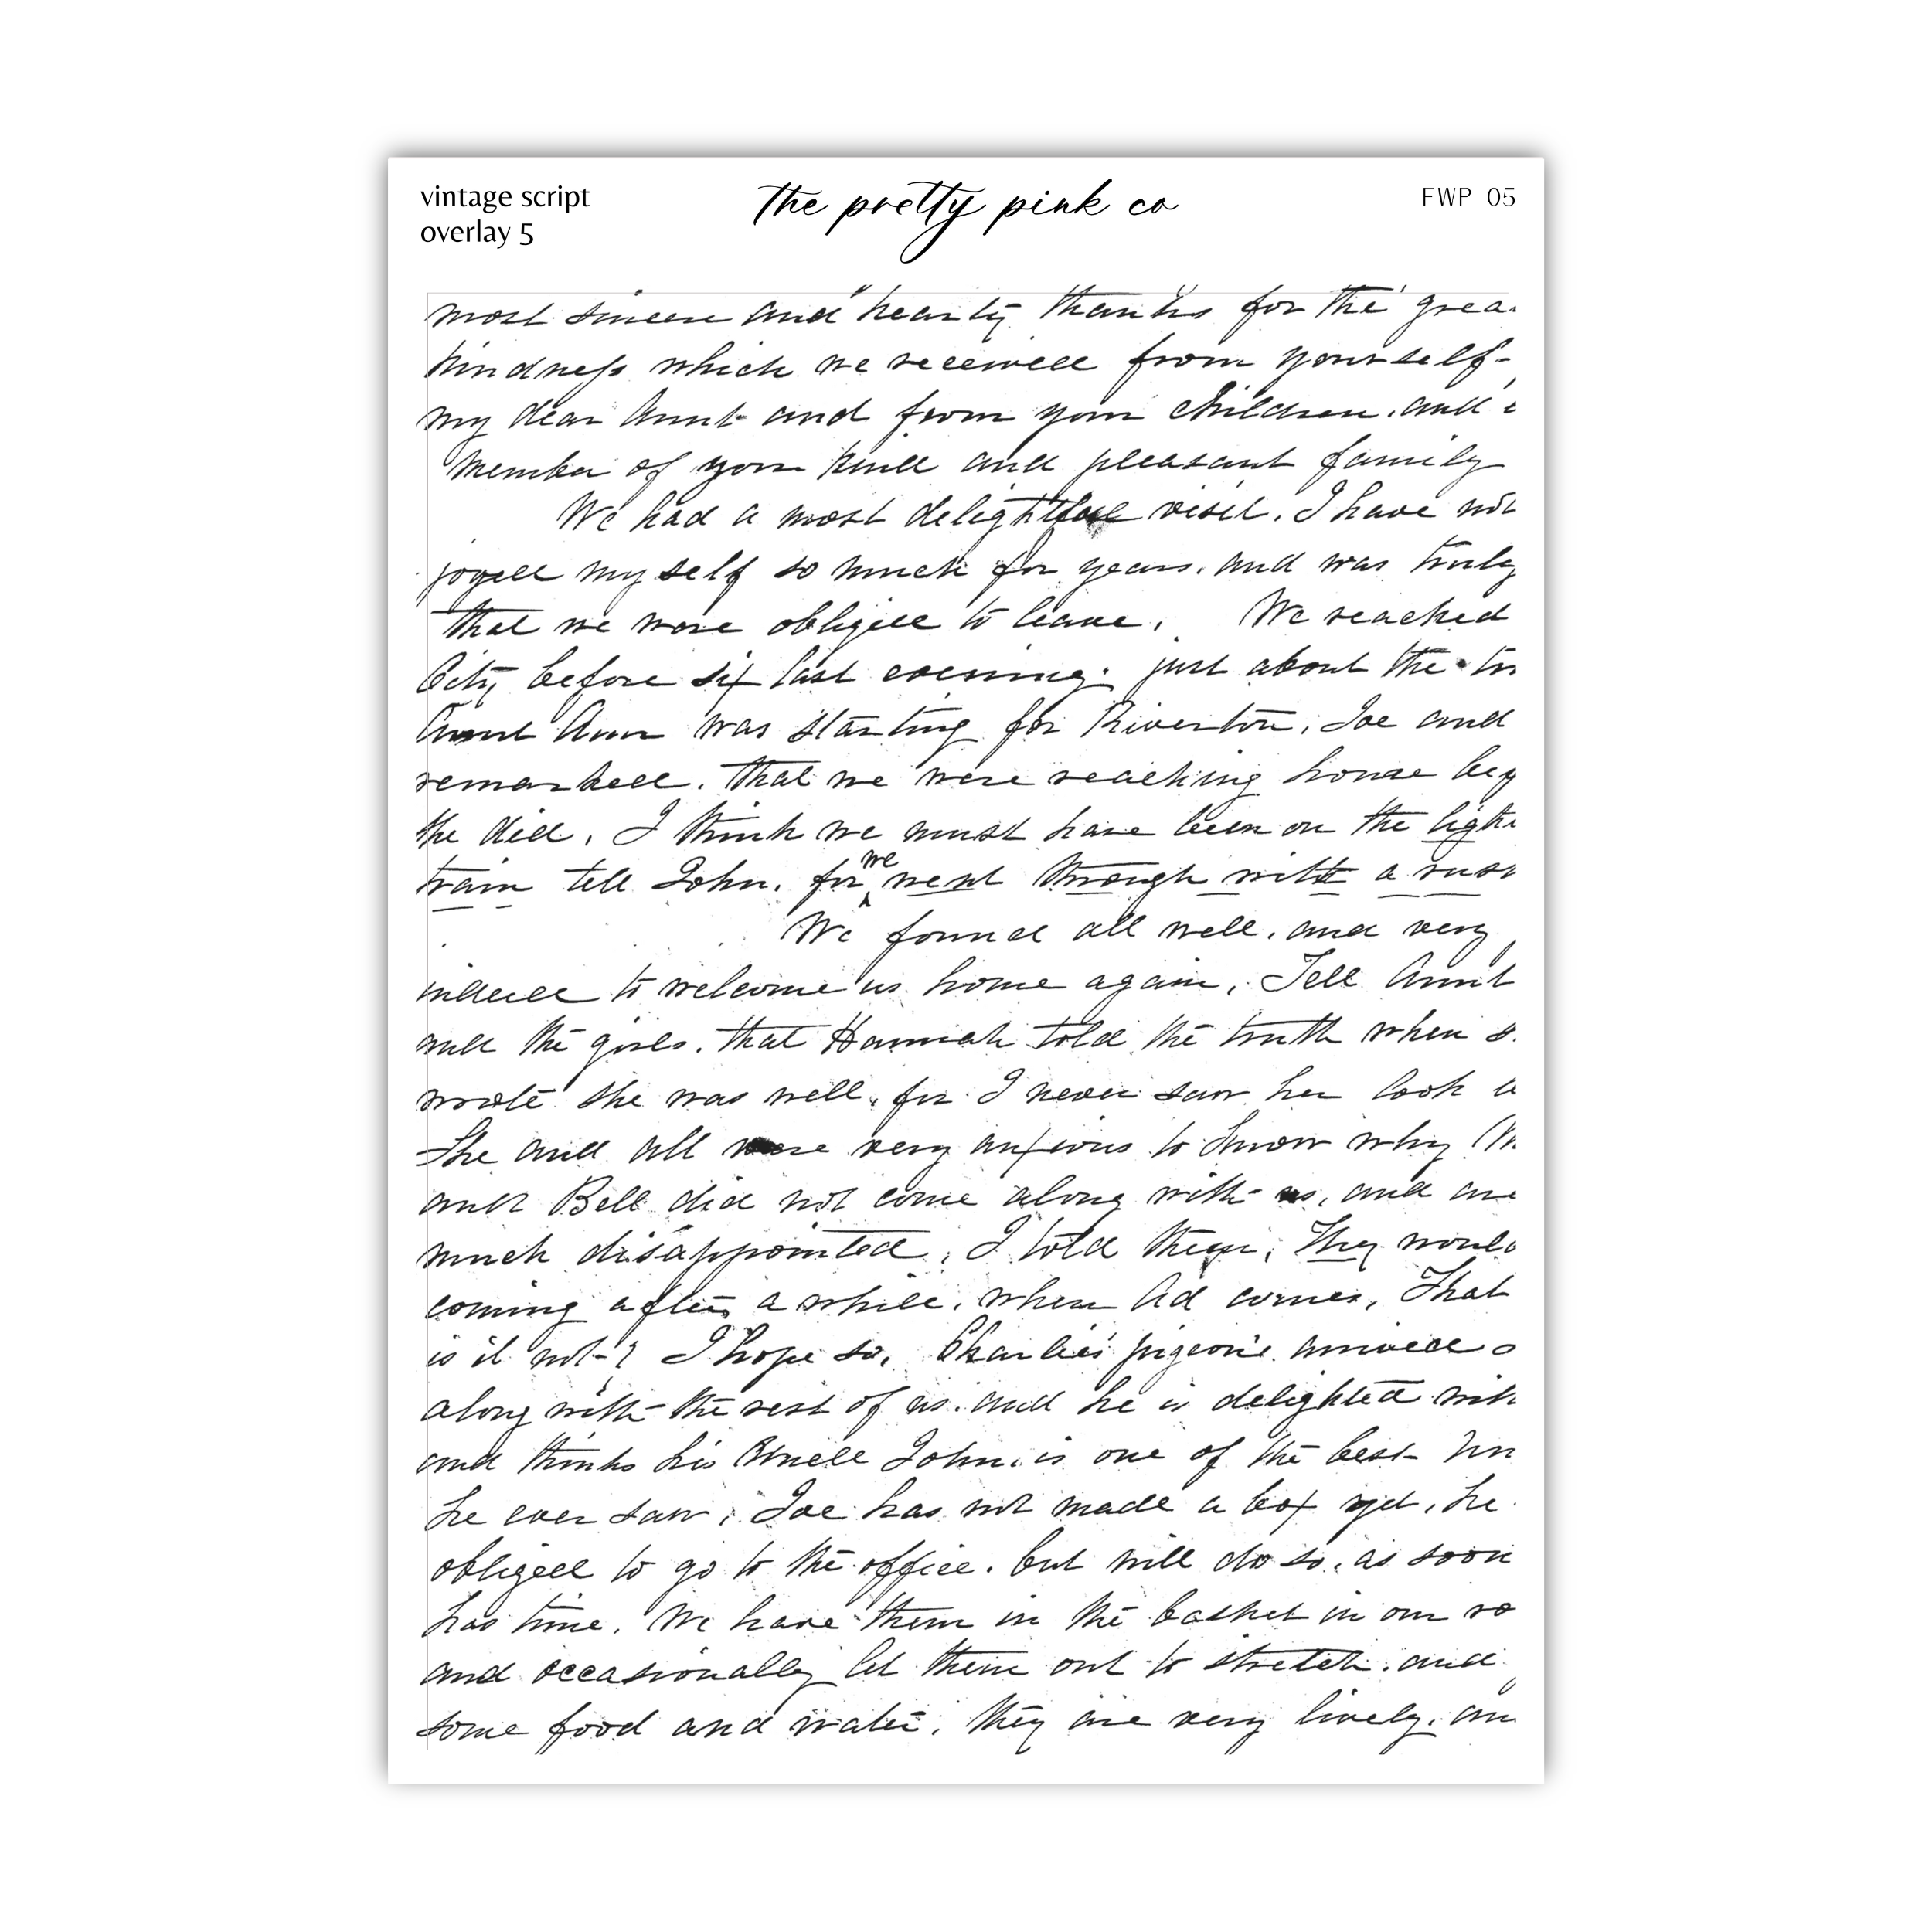 vintage script
overlay 5
the pretty pink co
FWP 05
most sincere and hearty thanks for the grea
kindness which we received from yourself-
my dear Aunt and from your children. and
member of your kind and pleasant family
We had a most delightful visit. I have not
joyed myself so much for years. and was truly
that we were obliged to leave. We reached
City before six last evening. just about the
Aunt Ann was starting for Riverton. Joe and
remarked. that we were reaching home
she did. I think we must have been on the
train tell John. for we went through with a
We found all well. and very
indeed to welcome us home again. Tell Aunt
and the girls. that Hannah told the truth when
wrote she was well. for I never saw her look
She and all were very anxious to know why
and Bell did not come along with us. and
much disappointed. I told them. They would
coming after a while. when Ad comes. That
is it not? I hope so. Charlie's pigeons arrived
along with the rest of us. and he is delighted with
and thinks his Uncle John. is one of the best
he ever saw. Joe has not made a box yet. he
obliged to go to the office. but will do so. as soon
has time. We have them in the basket in our
and occasionally let them out to stretch. and
some food and water. they are very lively.